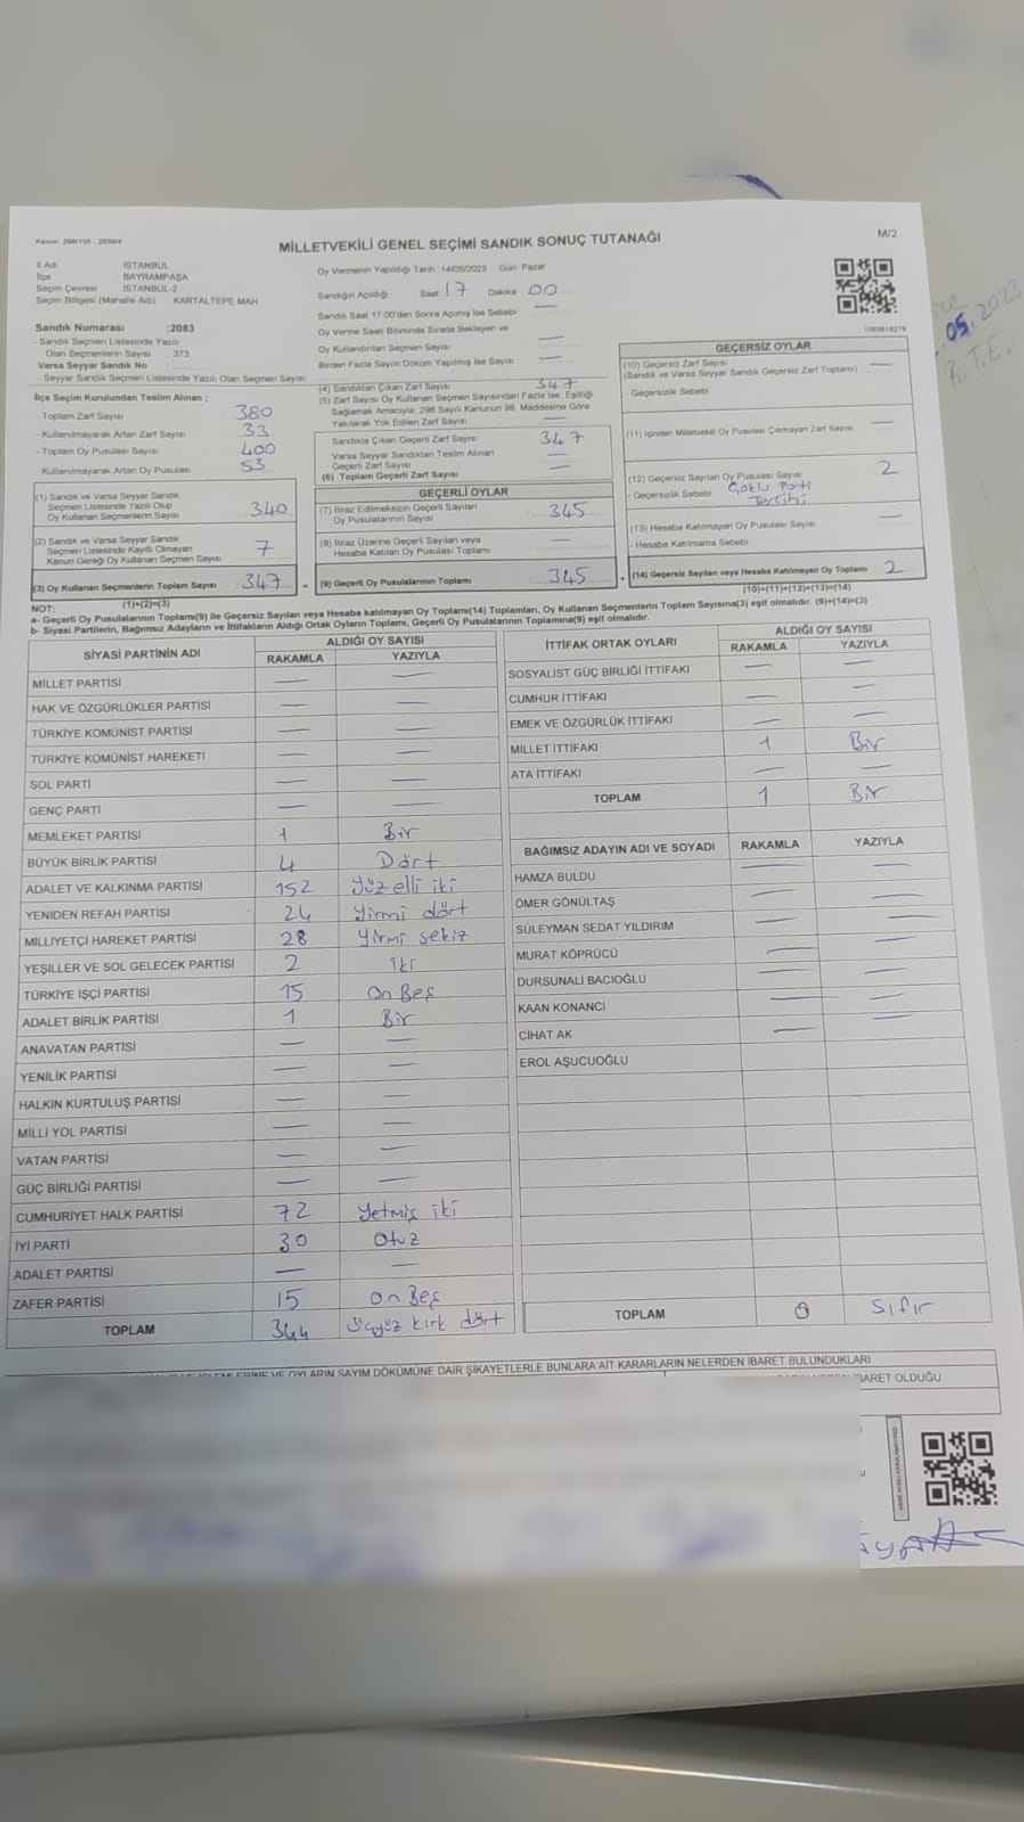 MİLLETVEKİLİ GENEL SEÇİMİ SANDIK SONUÇ TUTANAĞI
M/2
İl Adı İSTANBUL
İlçe BAYRAMPAŞA
Seçim Çevresi İSTANBUL-2
Seçim Bölgesi (Mahalle Adı) KARTALTEPE MAH
Oy Vermenin Yapıldığı Tarih :14/05/2023 Gün: Pazar
Sandığın Açıldığı Saat 17 Dakika 00
Sandık Saat 17:00'den Sonra Açılmış İse Sebebi —
Oy Verme Saati Bitiminde Sırada Bekleyen ve
Oy Kullandırılan Seçmen Sayısı —
Birden Fazla Sayım Döküm Yapılmış İse Sayısı —
Sandık Numarası :2083
- Sandık Seçmen Listesinde Yazılı
Olan Seçmenlerin Sayısı 373
Varsa Seyyar Sandık No
- Seyyar Sandık Seçmen Listesinde Yazılı Olan Seçmen Sayısı
İlçe Seçim Kurulundan Teslim Alınan ;
- Toplam Zarf Sayısı 380
- Kullanılmayarak Artan Zarf Sayısı 33
- Toplam Oy Pusulası Sayısı 400
- Kullanılmayarak Artan Oy Pusulası 53
(1) Sandık ve Varsa Seyyar Sandık
Seçmen Listesinde Yazılı Olup
Oy Kullanan Seçmenlerin Sayısı 340
(2) Sandık ve Varsa Seyyar Sandık
Seçmen Listesinde Kayıtlı Olmayan
Kanun Gereği Oy Kullanan Seçmen Sayısı 7
(3) Oy Kullanan Seçmenlerin Toplam Sayısı 347
(1)+(2)=(3)
(4) Sandıktan Çıkan Zarf Sayısı 347
(5) Zarf Sayısı Oy Kullanan Seçmen Sayısından Fazla İse, Eşitliği
Sağlamak Amacıyla; 298 Sayılı Kanunun 98. Maddesine Göre
Yakılarak Yok Edilen Zarf Sayısı —
Sandıkta Çıkan Geçerli Zarf Sayısı 347
Varsa Seyyar Sandıktan Teslim Alınan
Geçerli Zarf Sayısı —
(6) Toplam Geçerli Zarf Sayısı —
GEÇERLİ OYLAR
(7) İtiraz Edilmeksizin Geçerli Sayılan
Oy Pusulalarının Sayısı 345
(8) İtiraz Üzerine Geçerli Sayılan veya
Hesaba Katılan Oy Pusulası Toplamı —
(9) Geçerli Oy Pusulalarının Toplamı 345
GEÇERSİZ OYLAR
(10) Geçersiz Zarf Sayısı —
(Sandık ve Varsa Seyyar Sandık Geçersiz Zarf Toplamı)
- Geçersizlik Sebebi
(11) İçinden Milletvekili Oy Pusulası Çıkmayan Zarf Sayısı —
(12) Geçersiz Sayılan Oy Pusulası Sayısı 2
- Geçersizlik Sebebi Çoklu Parti
Tercihi
(13) Hesaba Katılmayan Oy Pusulası Sayısı —
- Hesaba Katılmama Sebebi
(14) Geçersiz Sayılan veya Hesaba Katılmayan Oy Toplamı 2
(10)+(11)+(12)+(13)=(14)
NOT:
a- Geçerli Oy Pusulalarının Toplamı(9) ile Geçersiz Sayılan veya Hesaba katılmayan Oy Toplamı(14) Toplamları, Oy Kullanan Seçmenlerin Toplam Sayısına(3) eşit olmalıdır. (9)+(14)=(3)
b- Siyasi Partilerin, Bağımsız Adayların ve İttifakların Aldığı Ortak Oyların Toplamı, Geçerli Oy Pusulalarının Toplamına(9) eşit olmalıdır.
SİYASİ PARTİNİN ADI ALDIĞI OY SAYISI
RAKAMLA YAZIYLA
MİLLET PARTİSİ — —
HAK VE ÖZGÜRLÜKLER PARTİSİ — —
TÜRKİYE KOMÜNİST PARTİSİ — —
TÜRKİYE KOMÜNİST HAREKETİ — —
SOL PARTİ — —
GENÇ PARTİ — —
MEMLEKET PARTİSİ 1 Bir
BÜYÜK BİRLİK PARTİSİ 4 Dört
ADALET VE KALKINMA PARTİSİ 152 Yüz elli iki
YENİDEN REFAH PARTİSİ 24 Yirmi dört
MİLLİYETÇİ HAREKET PARTİSİ 28 Yirmi sekiz
YEŞİLLER VE SOL GELECEK PARTİSİ 2 İki
TÜRKİYE İŞÇİ PARTİSİ 15 On Beş
ADALET BİRLİK PARTİSİ 1 Bir
ANAVATAN PARTİSİ — —
YENİLİK PARTİSİ — —
HALKIN KURTULUŞ PARTİSİ — —
MİLLİ YOL PARTİSİ — —
VATAN PARTİSİ — —
GÜÇ BİRLİĞİ PARTİSİ — —
CUMHURİYET HALK PARTİSİ 72 Yetmiş iki
İYİ PARTİ 30 Otuz
ADALET PARTİSİ — —
ZAFER PARTİSİ 15 On Beş
TOPLAM 344 Üçyüz kırk dört
İTTİFAK ORTAK OYLARI ALDIĞI OY SAYISI
RAKAMLA YAZIYLA
SOSYALİST GÜÇ BİRLİĞİ İTTİFAKI — —
CUMHUR İTTİFAKI — —
EMEK VE ÖZGÜRLÜK İTTİFAKI — —
MİLLET İTTİFAKI 1 Bir
ATA İTTİFAKI — —
TOPLAM 1 Bir
BAĞIMSIZ ADAYIN ADI VE SOYADI RAKAMLA YAZIYLA
HAMZA BULDU — —
ÖMER GÖNÜLTAŞ — —
SÜLEYMAN SEDAT YILDIRIM — —
MURAT KÖPRÜCÜ — —
DURSUNALİ BACIOĞLU — —
KAAN KONANCI — —
CİHAT AK — —
EROL AŞUCUOĞLU
TOPLAM 0 Sıfır
OYLARIN SAYIM DÖKÜMÜNE DAİR ŞİKAYETLERLE BUNLARA AİT KARARLARIN NELERDEN İBARET BULUNDUKLARI
BARET OLDUĞU
05.2023
R.T.E.